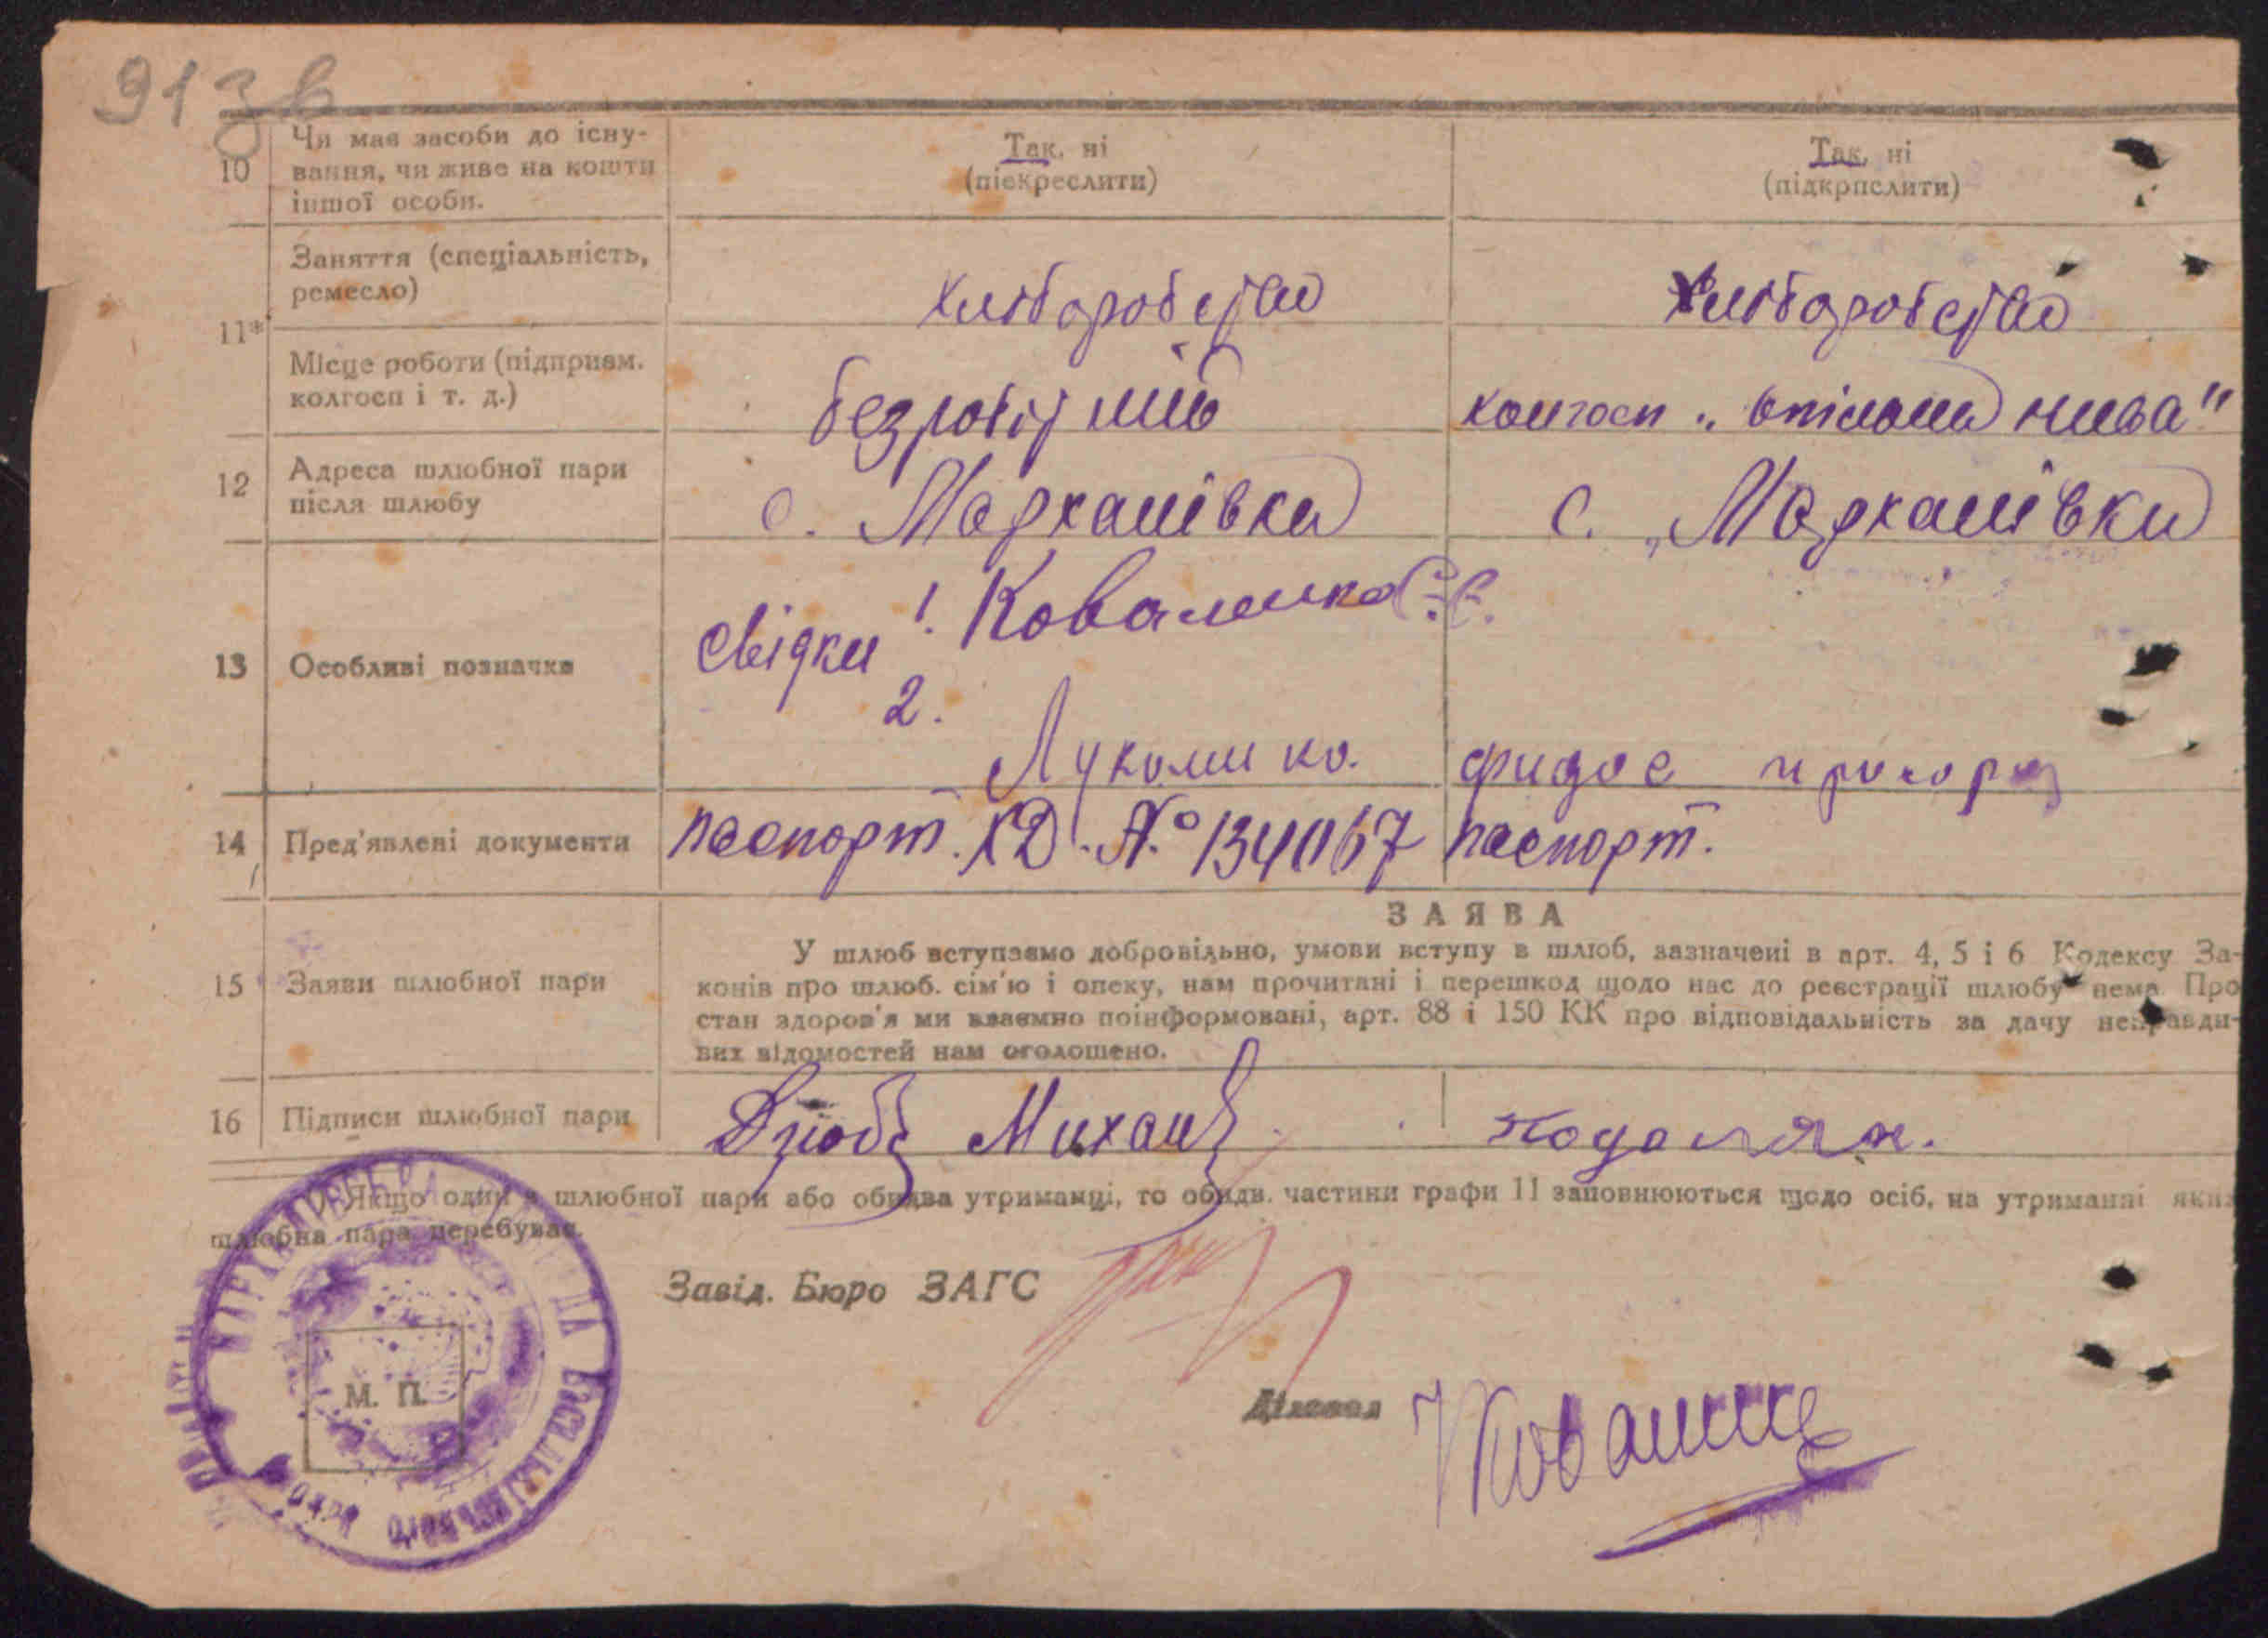 913в
10
Чи має засоби до існу-
вання, чи живе на кошти
іншої особи.
Так, ні
(пієкреслити)
Так, ні
(підкрпслити)
11*
Заняття (спеціальність,
ремесло)
хліборобство
хліборобство
Місце роботи (підприєм.
колгосп і т. д.)
безробітний
колгосп „ нива"
12
Адреса шлюбної пари
після шлюбу
с. Мархалівка
с. „Мархалівка
13
Особливі позначки
свідки 1. Коваленко
2.
Лукаш ко.
14
Пред'явлені документи
паспорт. КД. № 134067
паспорт.
15
Заяви шлюбної пари
ЗАЯВА
У шлюб вступаємо добровільно, умови вступу в шлюб, зазначені в арт. 4, 5 і 6 Кодексу За-
конів про шлюб. сім'ю і опеку, нам прочитані і перешкод щодо нас до реєстрації шлюбу нема Про
стан здоров'я ми взаємно поінформовані, арт. 88 і 150 КК про відповідальність за дачу неправди-
вих відомостей нам оголошено.
16
Підписи шлюбної пари
Дзюба Михаил
Подолян.
Якщо один з шлюбної пари або обидва утриманці, то обидв. частини графи 11 заповнюються щодо осіб, на утриманні яких
шлюбна пара перебуває.
Завід. Бюро ЗАГС
М. П.
Діловод